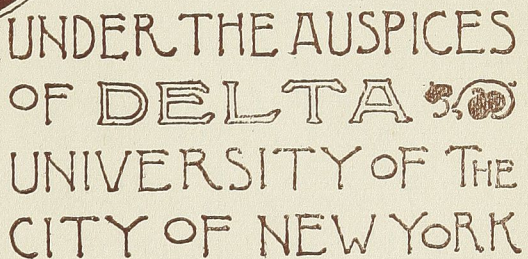 UNDER THE AUSPICES
OF DELTA
UNIVERSITY OF THE
CITY OF NEW YORK